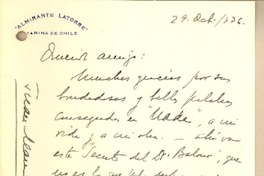 "ALMIRANTE LATORRE"
MARINA DE CHILE
29. Oct. / 936.
Querido amigo:
Muchas gracias por sus
bondadosas y bellas palabras
consagradas en "
vida y a mi obra. – ahí va
este Secreto del Dr. Baloux, que
no es lo que
Juan